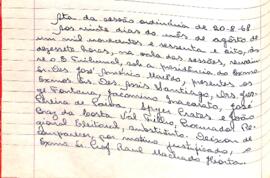 Ata da sessão ordinária de 20-8-68.
Aos vinte dias do mês de agôsto de
mil novecentos e sessenta e oito, às
dezessete horas, na sala das sessões, reuniu-
se o E. Tribunal, sob a presidência do Exmo.
Sr. Des. José Américo Macêdo, presentes os
Exmos. Srs. Des. Jonis Santiago, Drs. Jor-
ge Fontana, Jacomino Inacarato, José
Pereira de Paiva, Spyer Prates e João
Braz da Costa Val Filho, Procurador Re-
gional Eleitoral, substituto. Deixou de
comparecer, por motivo justificado, o
Exmo. Sr. Prof. Raul Machado Horta.